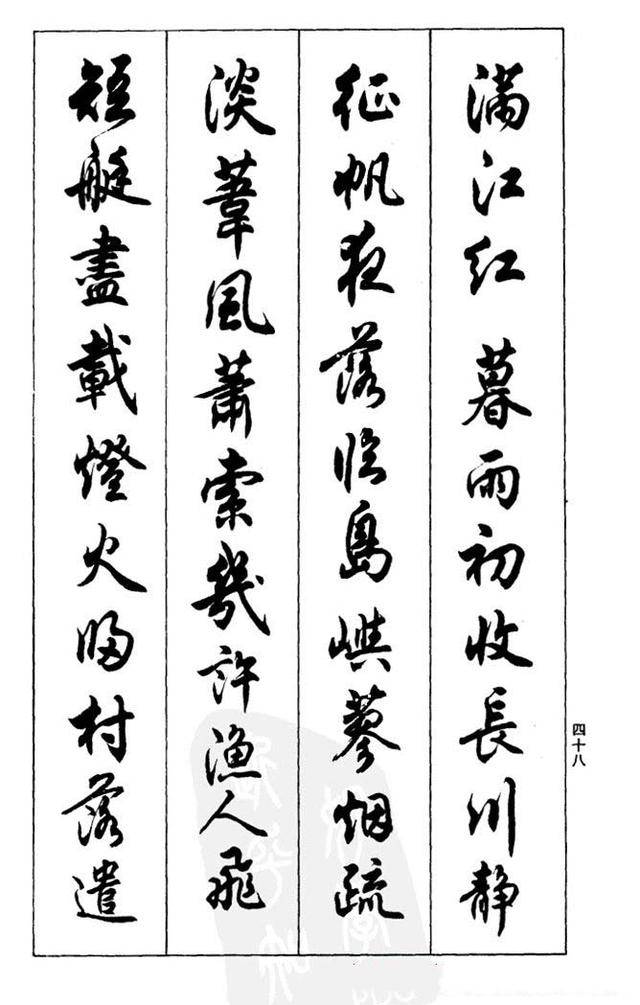 滿江紅 暮雨初收長川靜
征帆夜落臨島嶼蓼烟疏
淡葦風蕭索幾許漁人飛
短艇盡載燈火歸村落遣
四十八